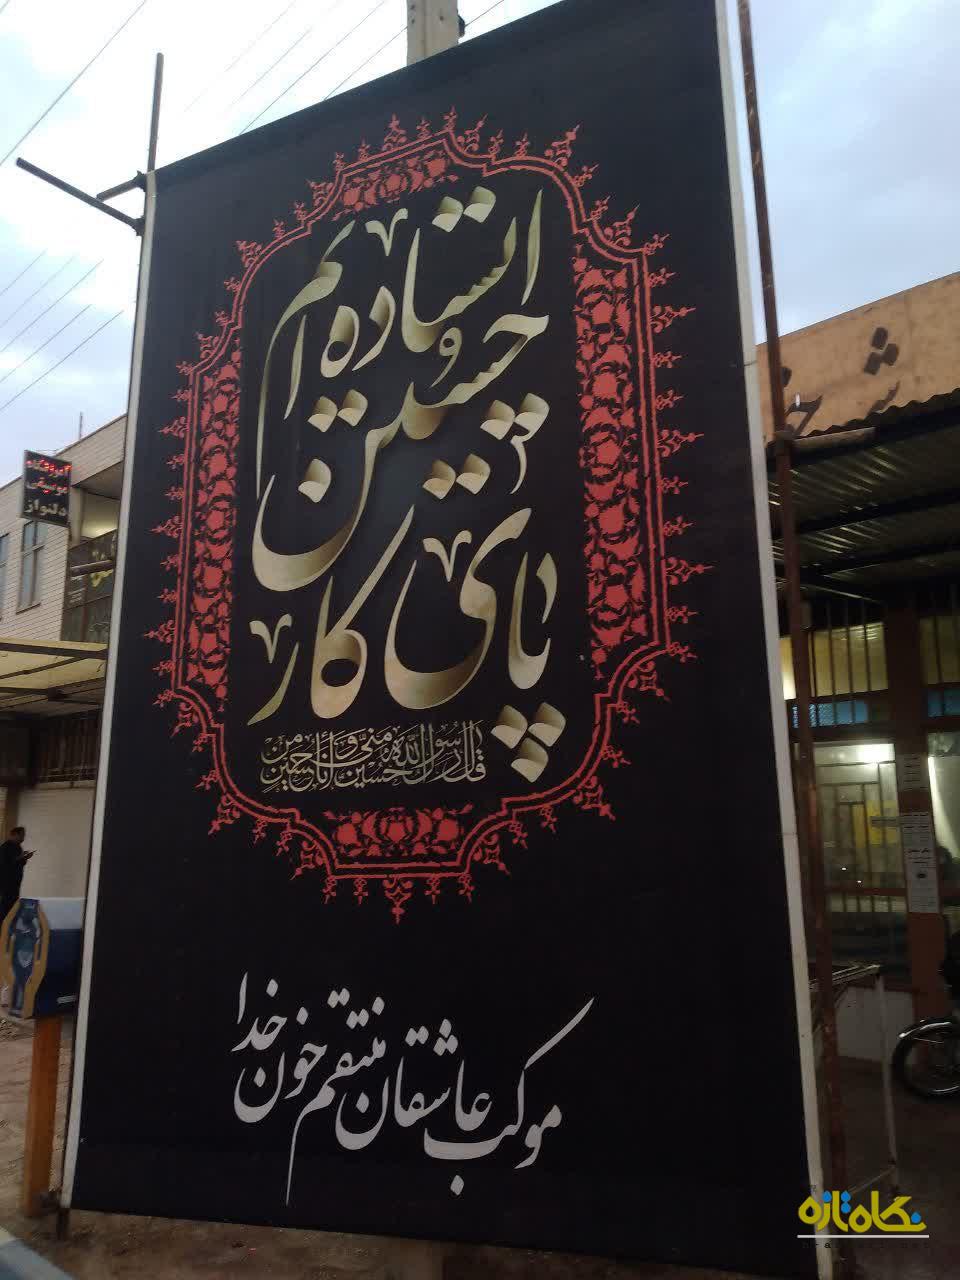 ایستاده ایم
حسین
پای کار
قال رسول الله حسین منی و أنا من حسین
موکب عاشقان منتقم خون خدا
آموزشگاه
موسیقی
دلنواز
نگاه تازه